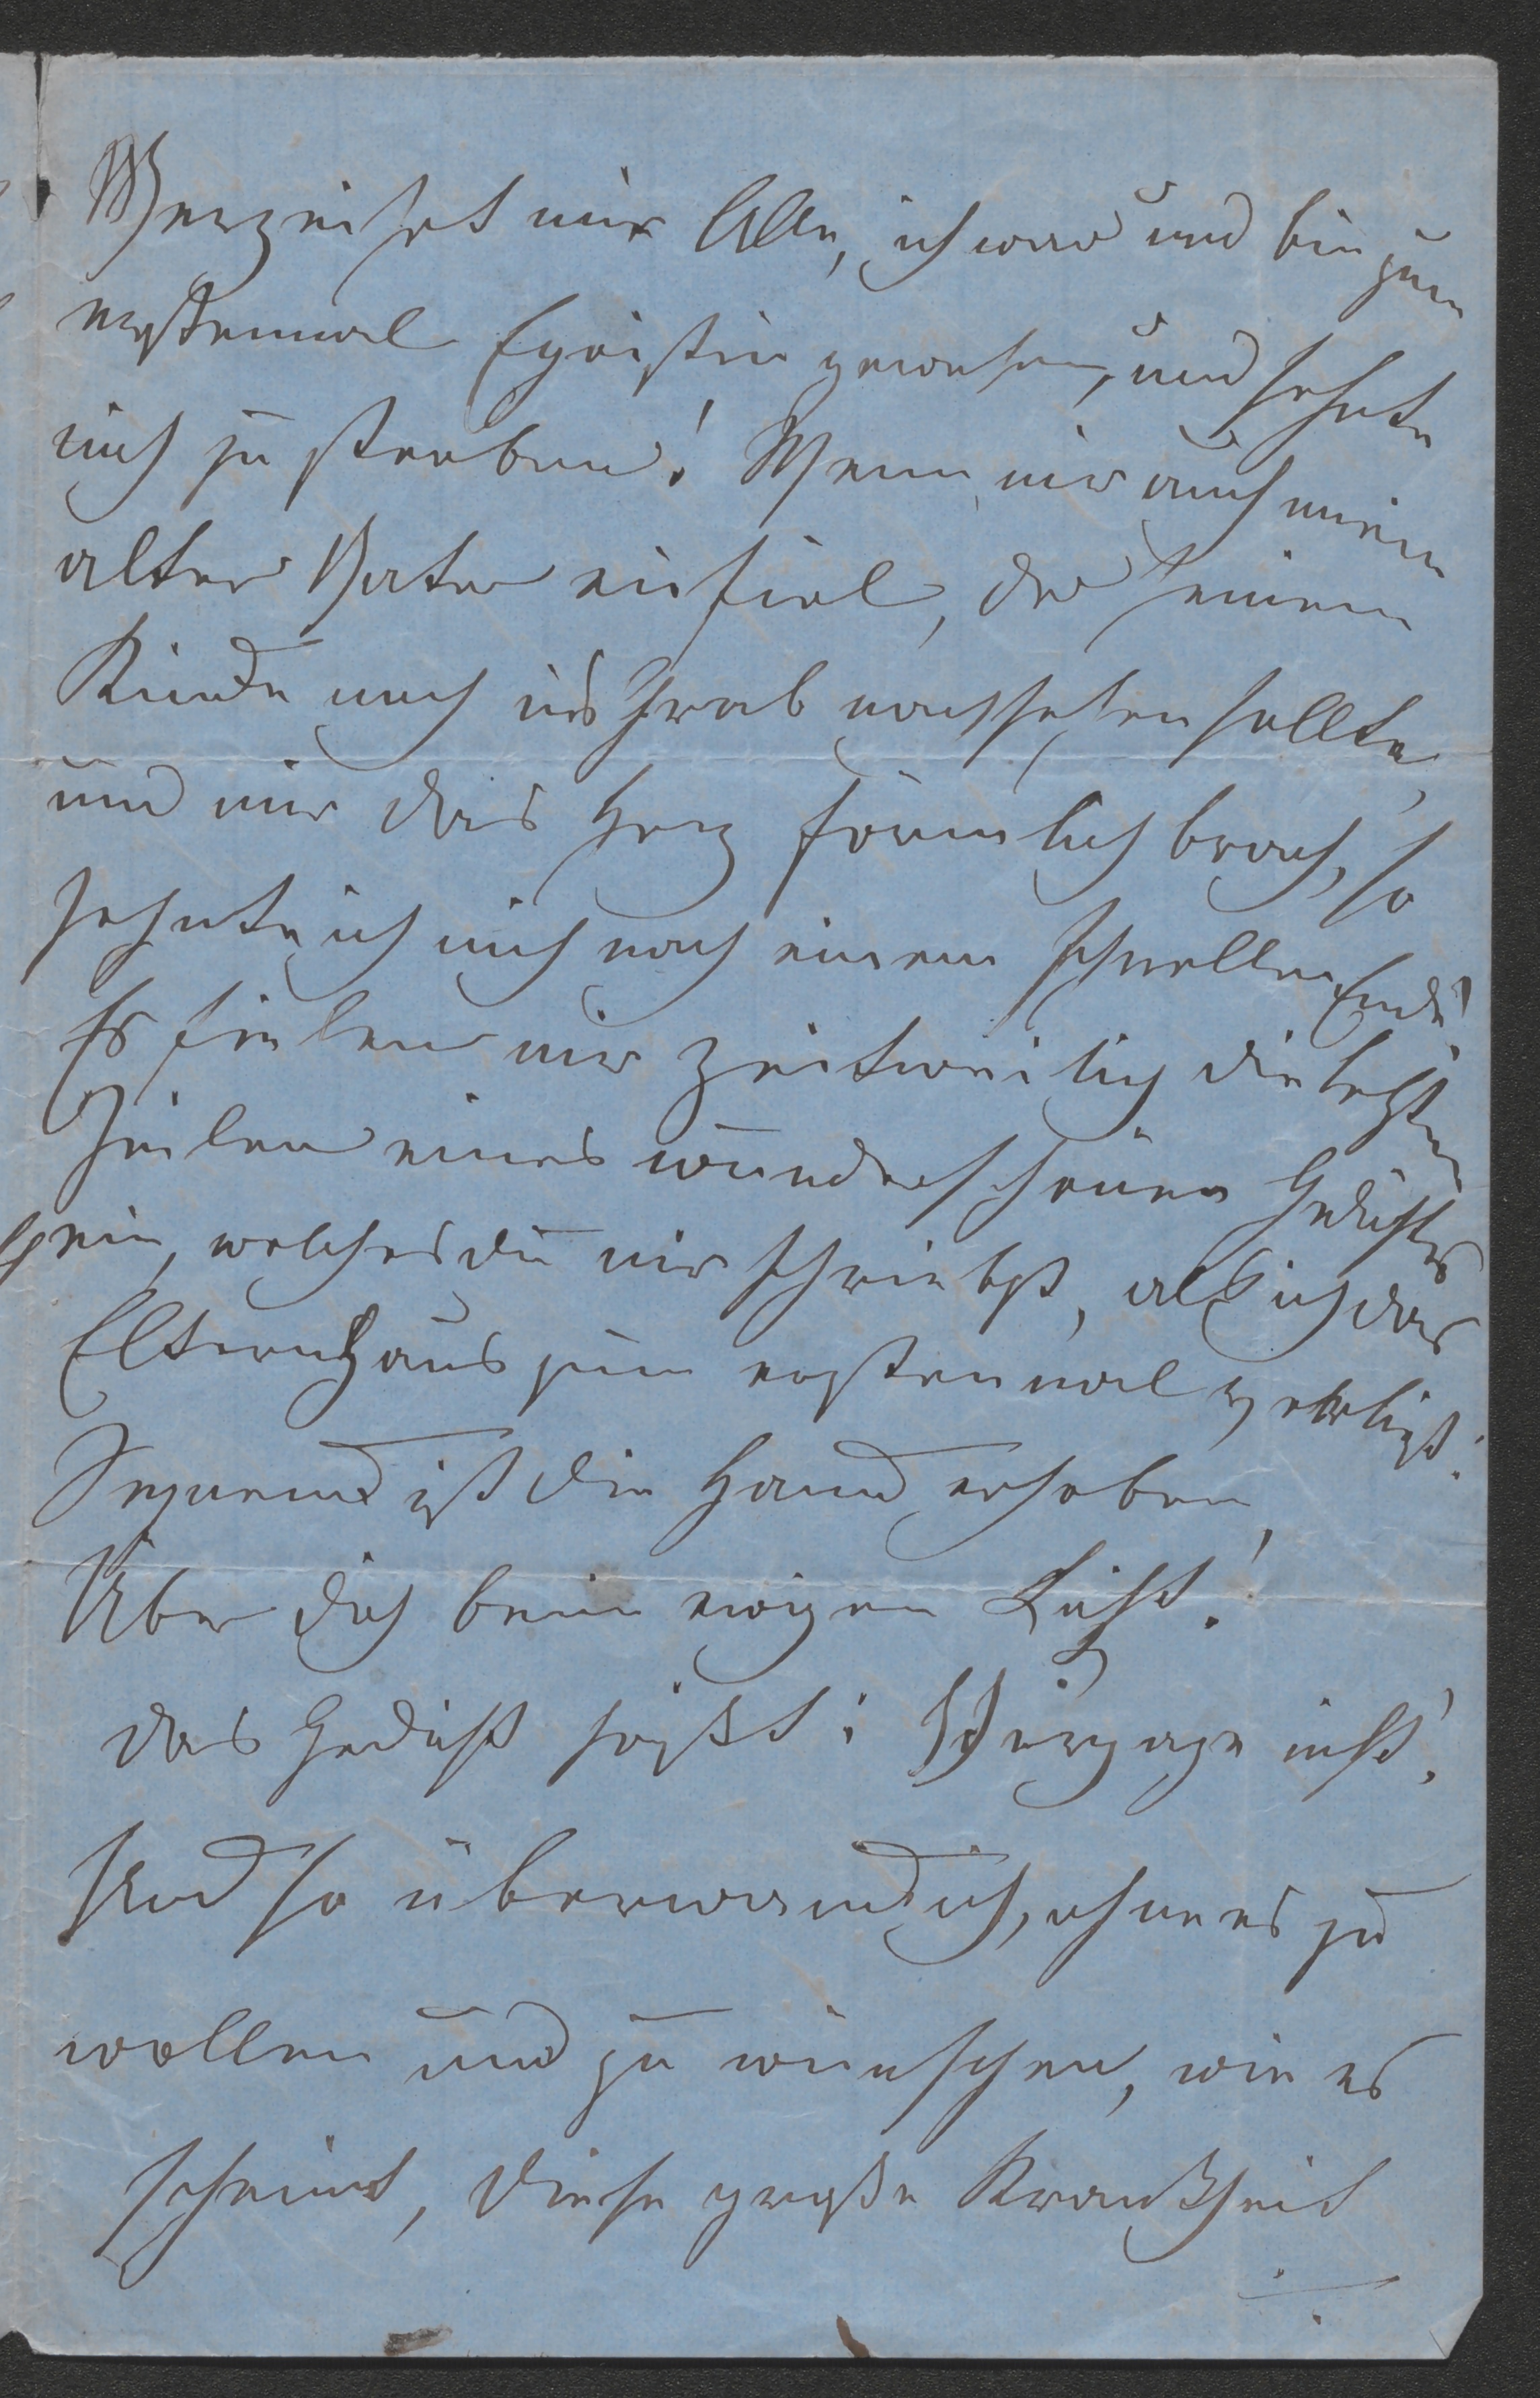 Verzeihet mir Alle, ich war und bin zum
erstenmal Egoistin gewesen, und sehnte
mich zu sterben! Wenn mir auch mein
alter Vater einfiel, der seinem
Kinde noch ins Grab nachsehen sollte,
und mir das Herz förmlich brach, so
sehnte ich mich nach einem schnellen Ende!
Es fielen mir zeitweilig die letzten
Zeilen eines wunderschönen Gedichtes
ein, welches du mir schriebst, als ich das
Elternhaus zum erstenmal verließ:
Segnend ist die Hand erhoben,
Über dich beim ewigen Licht!
das Gedicht heißt: Verzage nicht!
Und so überwand ich, ohne es zu
wollen und zu wünschen, wie es
scheint, diese große Krankheit